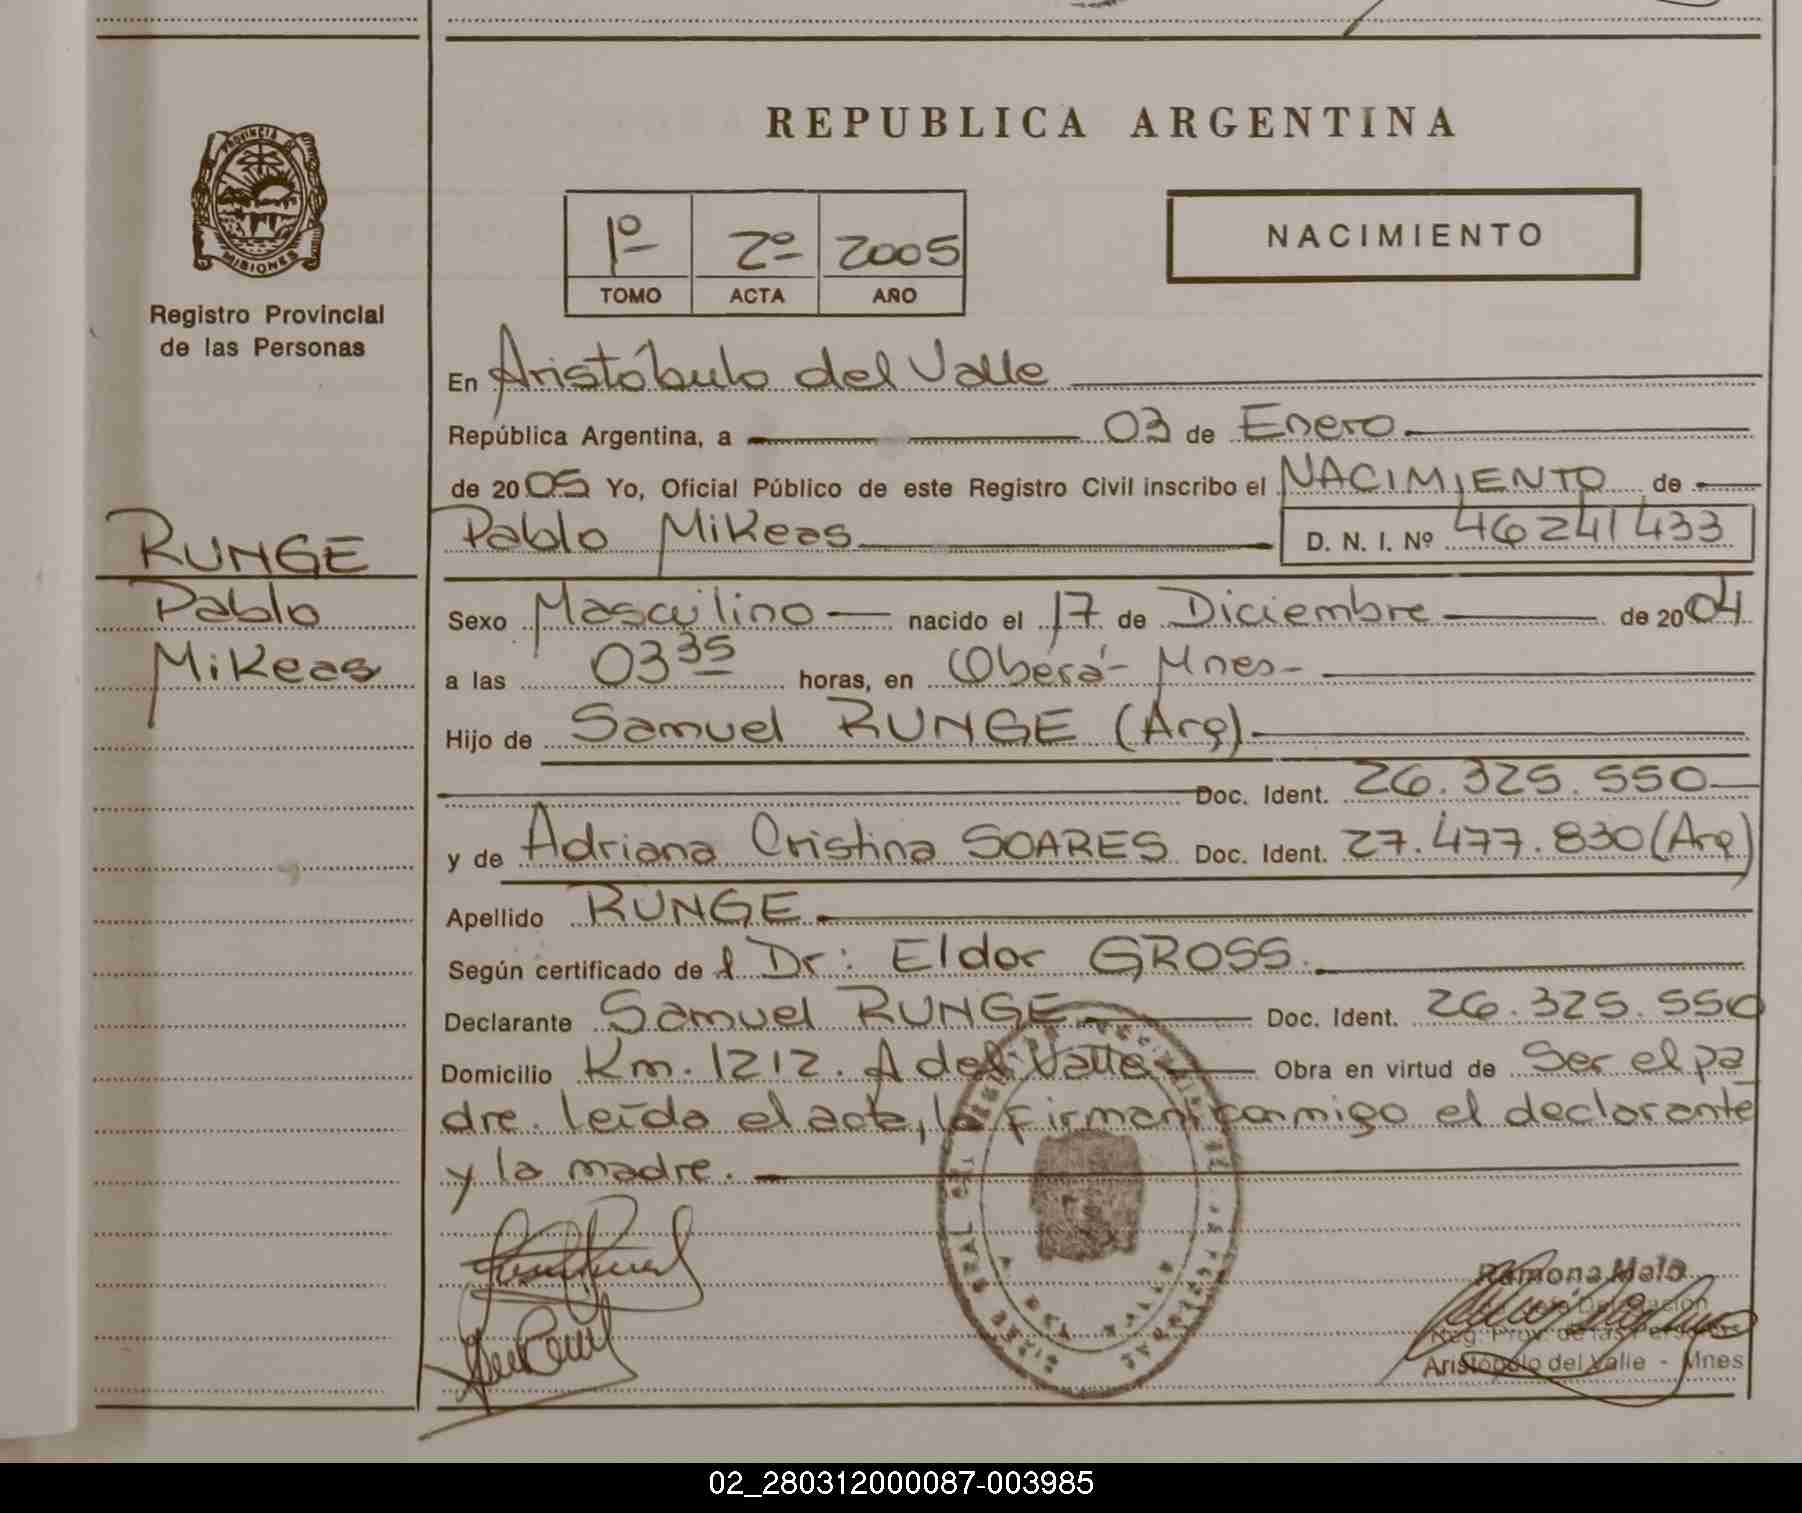 REPUBLICA ARGENTINA
PROVINCIA DE
MISIONES
Registro Provincial
de las Personas
1º 2º 2005
TOMO ACTA AÑO
NACIMIENTO
En Aristóbulo del Valle
República Argentina, a 03 de Enero
de 2005 Yo, Oficial Público de este Registro Civil inscribo el NACIMIENTO de
Pablo Mikeas D. N. I. Nº 46241433
RUNGE
Pablo
Mikeas
Sexo Masculino nacido el 17 de Diciembre de 2004
a las 03 35 horas, en Oberá - Mnes -
Hijo de Samuel RUNGE (Arg)
Doc. Ident. 26.325.550
y de Adriana Cristina SOARES Doc. Ident. 27.477.830 (Arg)
Apellido RUNGE
Según certificado del Dr: Eldor GROSS.
Declarante Samuel RUNGE Doc. Ident. 26.325.550
Domicilio Km. 1212. A del Valle Obra en virtud de Ser el pa
dre. leída el acta, la firman conmigo el declarante
y la madre.
Ramona Melo
Delegación
Reg. Prov. de las Personas
Aristóbulo del Valle - Mnes
02_280312000087-003985